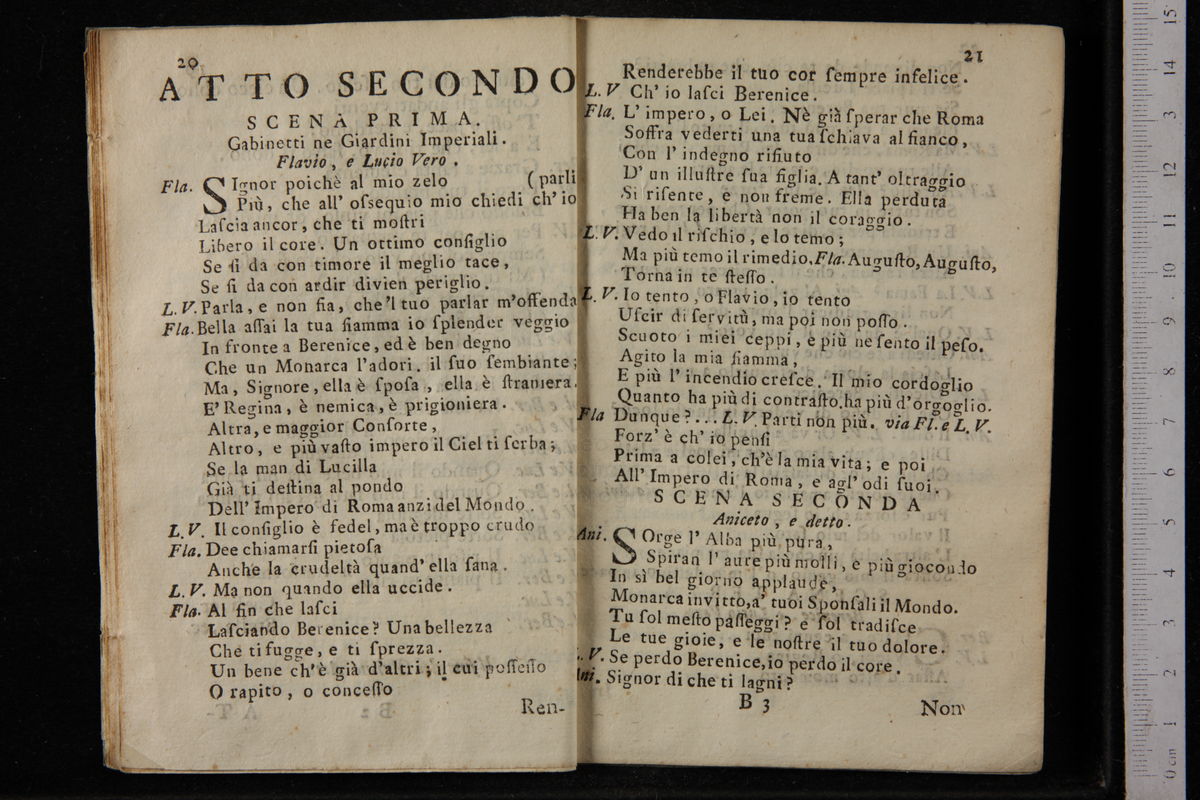 20
ATTO SECONDO
SCENA PRIMA.
Gabinetti ne Giardini Imperiali.
Flavio, e Lucio Vero.
Fla. SIgnor poichè al mio zelo (parli
Più, che all' ofsequio mio chiedi ch' io
Laſcia ancor, che ti moſtri
Libero il core. Un ottimo conſiglio
Se ſi da con timore il meglio tace,
Se ſi da con ardir divien periglio.
L. V. Parla, e non ſia, che 'l tuo parlar m'offenda
Fla. Bella aſſai la tua fiamma io ſplender veggio
In fronte a Berenice, ed è ben degno
Che un Monarca l'adori. il ſuo ſembiante;
Ma, Signore, ella è ſpoſa, ella è ſtraniera.
E' Regina, è nemica, è prigioniera.
Altra, e maggior Conſorte,
Altro, e più vaſto impero il Ciel ti ſerba;
Se la man di Lucilla
Già ti deſtina al pondo
Dell' Impero di Roma anzi del Mondo.
L. V. Il conſiglio è fedel, ma è troppo crudo
Fla. Dee chiamarſi pietoſa
Anche la crudeltà quand' ella ſana.
L. V. Ma non quando ella uccide.
Fla. Al fin che laſci
Laſciando Berenice? Una bellezza
Che ti fugge, e ti ſprezza.
Un bene ch' è già d'altri; il cui poſſeſſo
O rapito, o conceſſo
Ren-
21
Renderebbe il tuo cor ſempre infelice.
L. V Ch' io laſci Berenice.
Fla. L' impero, o Lei. Nè già ſperar che Roma
Soffra vederti una tua ſchiava al fianco,
Con l' indegno rifiuto
D' un illuſtre ſua figlia. A tant' oltraggio
Si riſente, e non freme. Ella perduta
Ha ben la libertà non il coraggio.
L. V. Vedo il riſchio, e lo temo;
Ma più temo il rimedio. Fla. Auguſto, Auguſto,
Torna in te ſteſſo.
L. V. Io tento, o Flavio, io tento
Uſcir di ſervitù, ma poi non poſſo.
Scuoto i miei ceppi, e più ne ſento il peſo.
Agito la mia fiamma,
E più l' incendio creſce. Il mio cordoglio
Quanto ha più di contraſto, ha più d'orgoglio.
Fla Dunque?... L. V. Parti non più. via Fl. e L. V.
Forz' è ch' io penſi
Prima a colei, ch'è la mia vita; e poi
All' Impero di Roma, e agl' odi ſuoi.
SCENA SECONDA
Aniceto, e detto.
Ani. SOrge l' Alba più pura,
Spiran l' aure più molli, e più giocondo
In sì bel giorno applaude,
Monarca invitto, a' tuoi Sponſali il Mondo.
Tu ſol meſto paſſeggi? e ſol tradiſce
Le tue gioie, e le noſtre il tuo dolore.
. V. Se perdo Berenice, io perdo il core.
Ani. Signor di che ti lagni?
B 3
Non